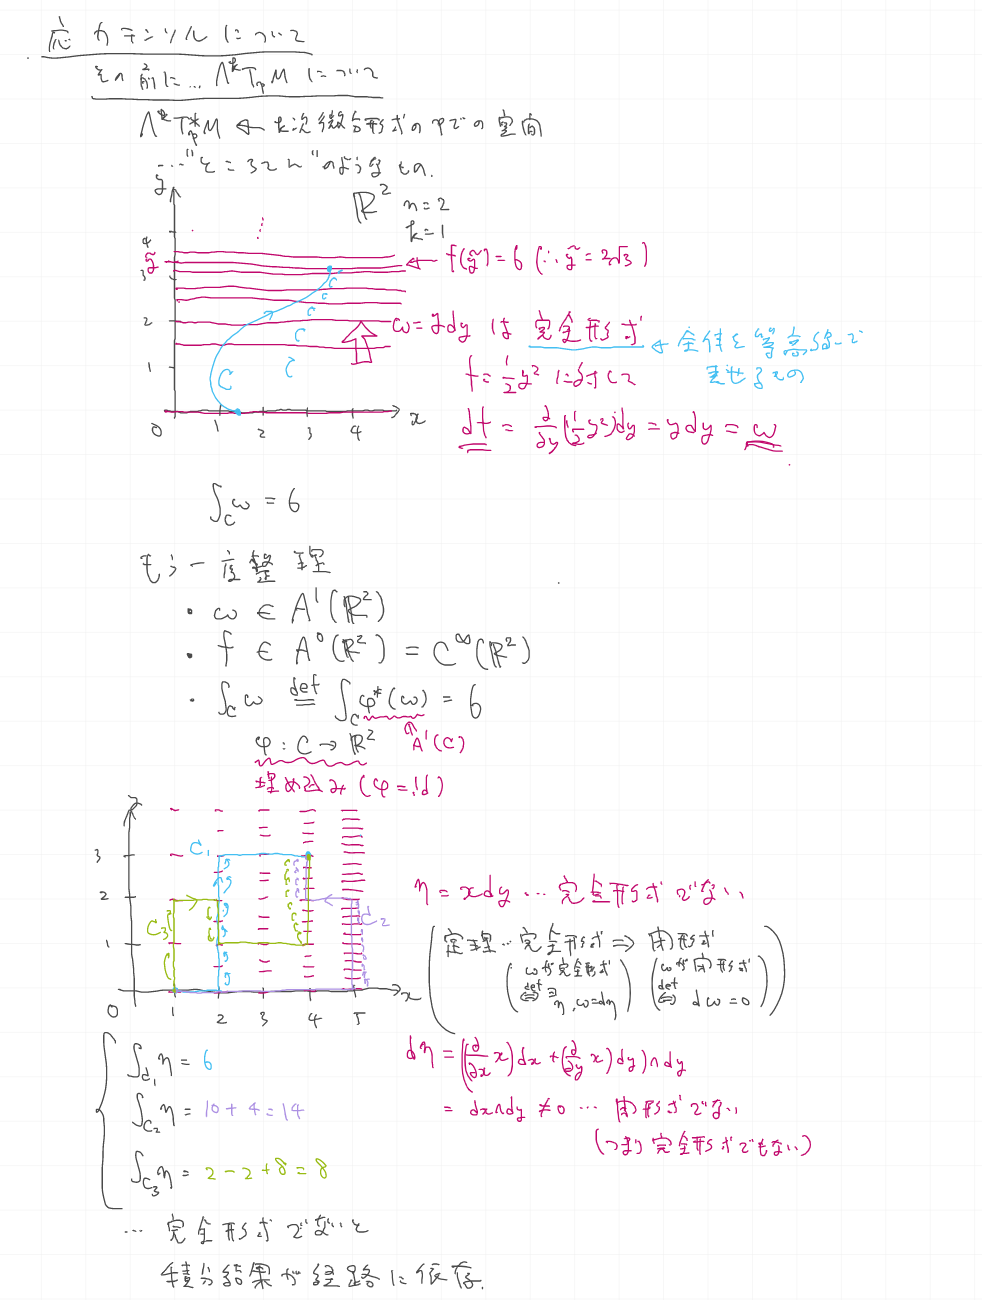 応力テンソルについて
その前に… Λ^k T_p M について
Λ^k T_p^* M ← k次微分形式のpでの空間
…"ところてん"のようなもの.
y
ℝ² n=2
k=1
4
ỹ
3
2
1
0 1 2 3 4 x
C
f(ỹ)=6 (∵ỹ=2√3)
ω=ydy は 完全形式
← 全体を等高線で
表せるもの
f=1/2 y² に対して
df = ∂/∂y(1/2 y²)dy = ydy = ω
∫_C ω = 6
もう一度整理
・ω ∈ A¹(ℝ²)
・f ∈ A⁰(ℝ²) = C^∞(ℝ²)
・∫_C ω def= ∫_C φ*(ω) = 6
φ : C → ℝ² A¹(C)
埋め込み (φ=id)
3
2
1
0 1 2 3 4 5 x
C₁
C₂
C₃
η = xdy … 完全形式でない
定理… 完全形式 ⇒ 閉形式
(ωが完全形式 def⇔ ∃η, ω=dη) (ωが閉形式 def⇔ dω=0)
dη = ((∂/∂x x)dx + (∂/∂y x)dy)∧dy
= dx∧dy ≠ 0 … 閉形式でない
(つまり完全形式でもない)
∫_C₁ η = 6
∫_C₂ η = 10+4=14
∫_C₃ η = 2-2+8=8
… 完全形式でないと
積分結果が経路に依存.